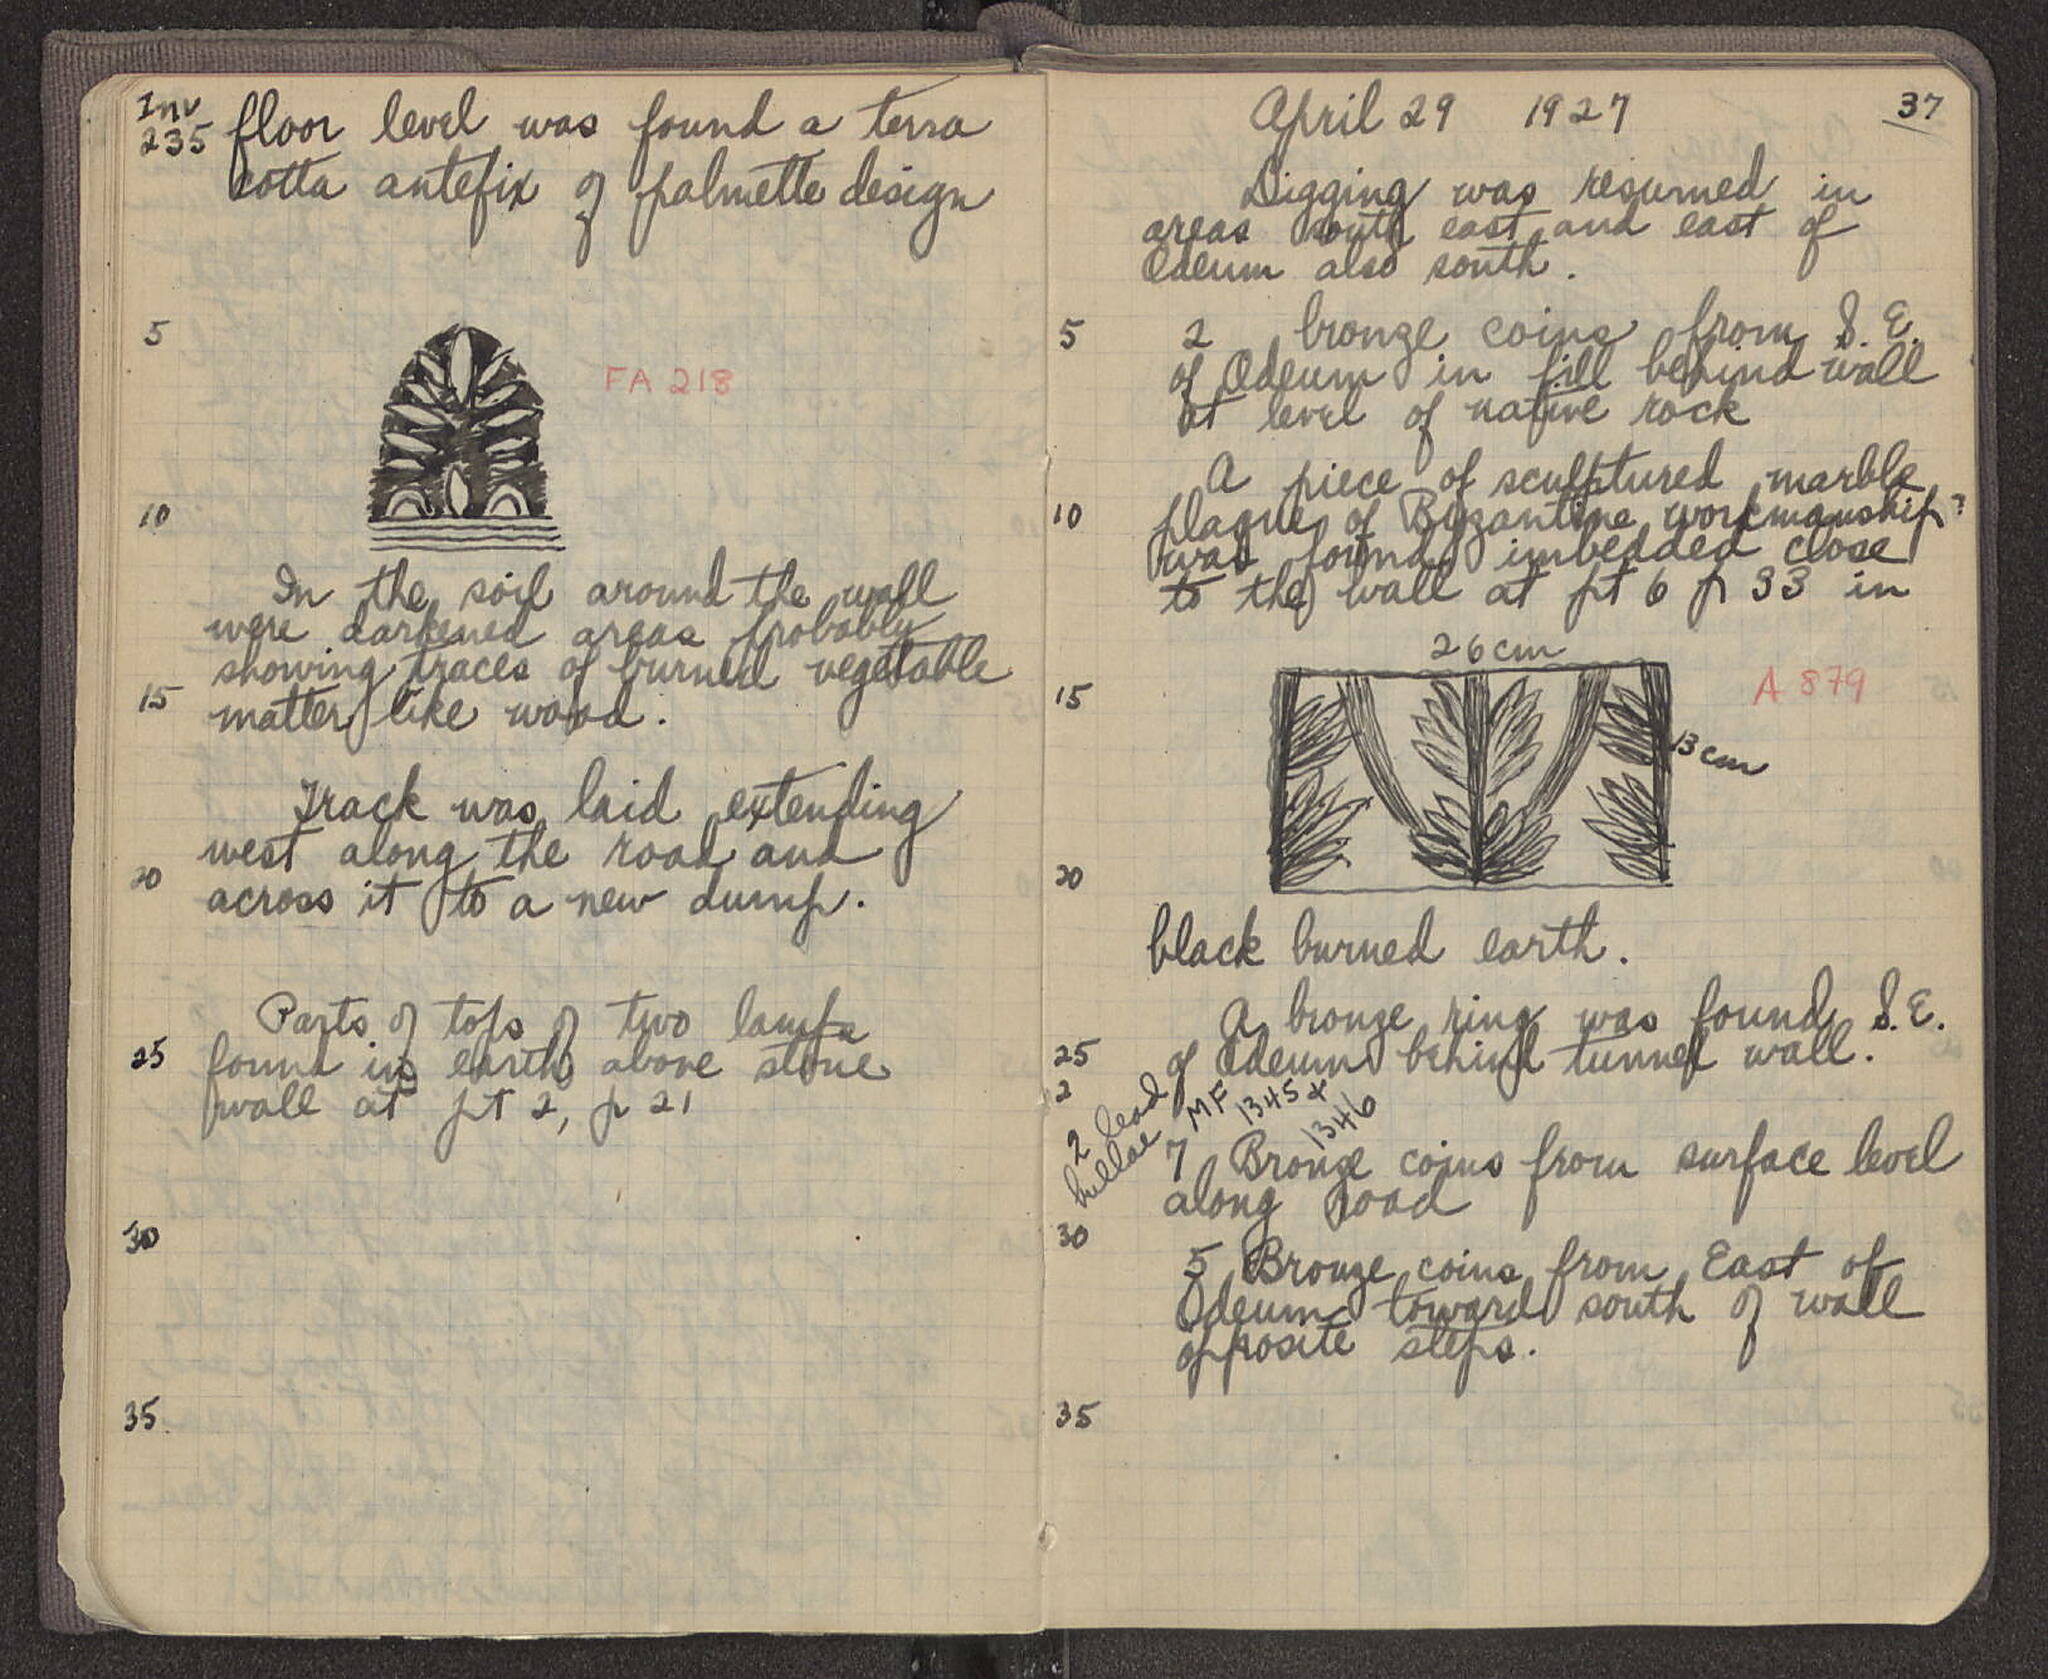 Inv
235 floor level was found a terra
cotta antefix of palmette design
5
FA 218
10
In the soil around the wall
were darkened areas probably
showing traces of burned vegetable
15 matter like wood.
Track was laid extending
west along the road and
20 across it to a new dump.
Parts of tops of two lamps
25 found in earth above stone
wall at pt 2, p 21
30
35
April 29 1927 37
Digging was resumed in
areas south east and east of
Odeum also south.
5 2 bronze coins from S.E.
of Odeum in fill behind wall
at level of native rock
A piece of sculptured marble
10 plaque of Byzantine workmanship?
was found imbedded close
to the wall at pt 6 p 33 in
26 cm
15 A 879
13 cm
20
black burned earth.
A bronze ring was found S.E.
25 of Odeum behind tunnel wall.
2
2 lead MF 1345 &
bullae 1346
7 Bronze coins from surface level
along road
30
5 Bronze coins from East of
Odeum toward south of wall
opposite steps.
35